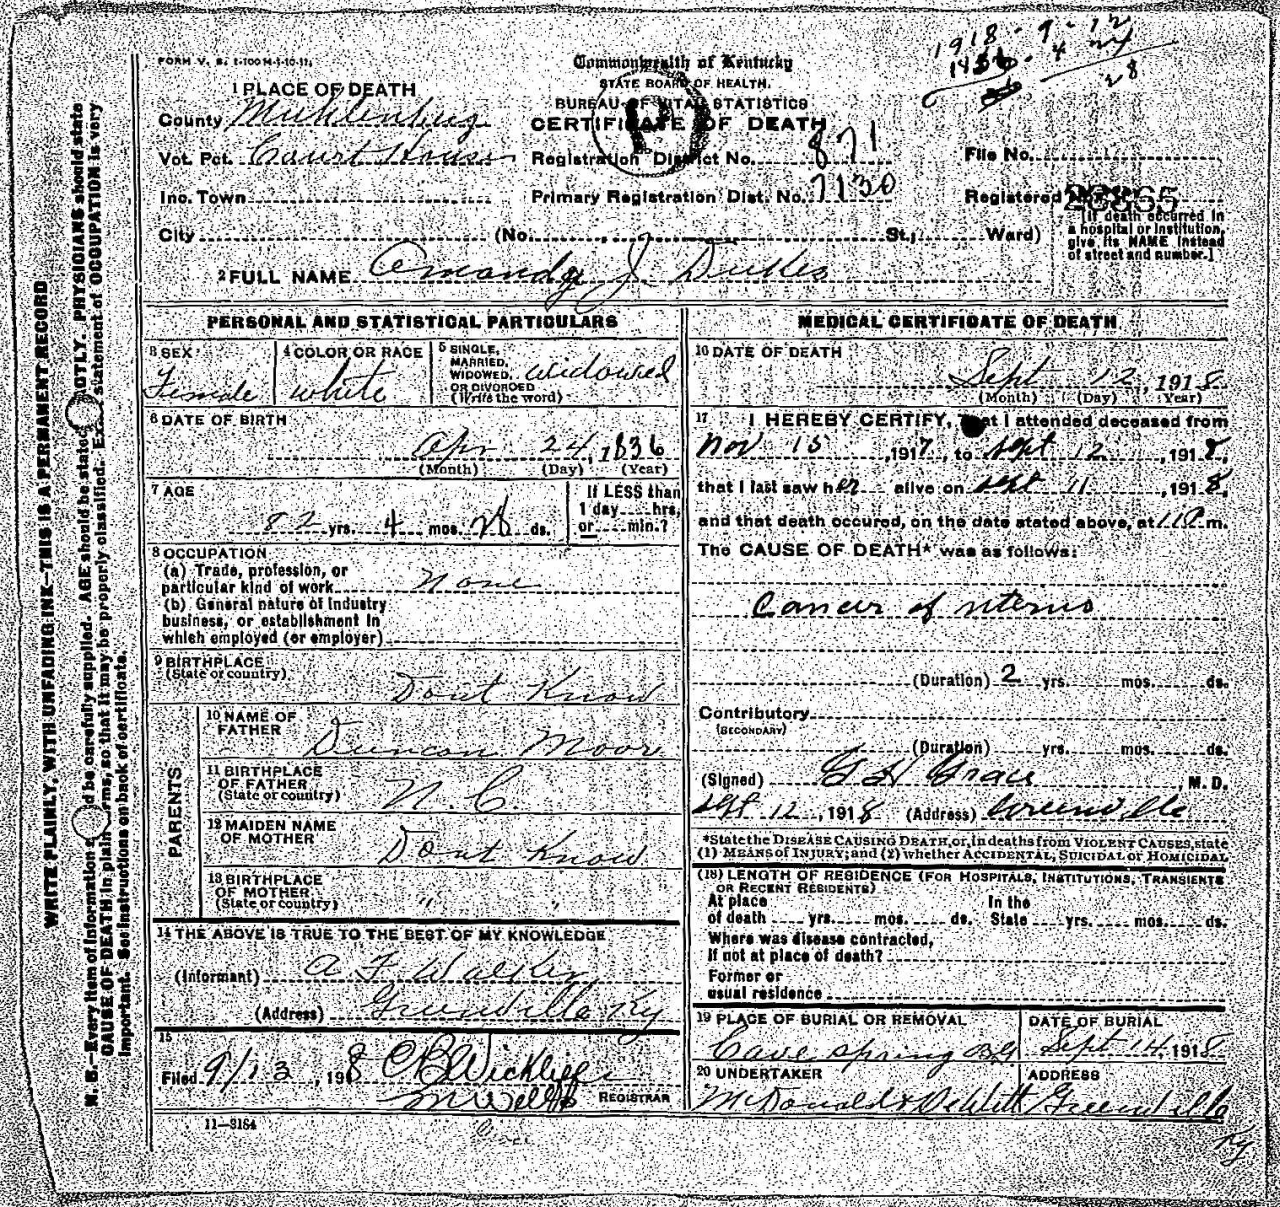 1918 - 9 - 12
FORM V. S. 1-100M-1-10-17.
Commonwealth of Kentucky
STATE BOARD OF HEALTH.
BUREAU OF VITAL STATISTICS
CERTIFICATE OF DEATH
1 PLACE OF DEATH
County Muhlenburg
Vot. Pct. Court House Registration District No. 871 File No.
Inc. Town Primary Registration Dist. No. 7130 Registered No. 23865
City (No. St.; Ward)
[If death occurred in a hospital or institution, give its NAME instead of street and number.]
2 FULL NAME Amanda J. Dukes
PERSONAL AND STATISTICAL PARTICULARS
3 SEX Female
4 COLOR OR RACE white
5 SINGLE, MARRIED, WIDOWED, OR DIVORCED (Write the word) widowed
6 DATE OF BIRTH
Apr 24, 1836
(Month) (Day) (Year)
7 AGE
82 yrs. 4 mos. 28 ds.
If LESS than 1 day hrs, or min.?
8 OCCUPATION
(a) Trade, profession, or particular kind of work None
(b) General nature of industry business, or establishment in which employed (or employer)
9 BIRTHPLACE
(State or country) Dont Know
PARENTS
10 NAME OF FATHER Duncan Moore
11 BIRTHPLACE OF FATHER (State or country) N. C
12 MAIDEN NAME OF MOTHER Dont Know
13 BIRTHPLACE OF MOTHER (State or country) " "
14 THE ABOVE IS TRUE TO THE BEST OF MY KNOWLEDGE
(Informant) A F
(Address) Greenville Ky
15
Filed 9/13, 1918 C B Wickliffe
REGISTRAR
11-3184
MEDICAL CERTIFICATE OF DEATH
16 DATE OF DEATH
Sept 12, 1918
(Month) (Day) (Year)
17 I HEREBY CERTIFY, That I attended deceased from
Nov 15, 1917, to Sept 12 1918,
that I last saw her alive on Sept 11, 1918,
and that death occured, on the date stated above, at 11 P m.
The CAUSE OF DEATH* was as follows:
Cancer of uterus
(Duration) 2 yrs. mos. ds.
Contributory
(SECONDARY)
(Duration) yrs. mos. ds.
(Signed) G H Grace, M. D.
Sept 12, 1918 (Address) Greenville
*State the DISEASE CAUSING DEATH, or, in deaths from VIOLENT CAUSES, state
(1) MEANS of INJURY; and (2) whether ACCIDENTAL, SUICIDAL or HOMICIDAL
(18) LENGTH OF RESIDENCE (FOR HOSPITALS, INSTITUTIONS, TRANSIENTS
OR RECENT RESIDENTS)
At place of death yrs. mos. ds. In the State yrs. mos. ds.
Where was disease contracted,
If not at place of death?
Former or
usual residence
19 PLACE OF BURIAL OR REMOVAL Cave Spring
DATE OF BURIAL Sept. 14, 1918
20 UNDERTAKER McDonald & DeWitt
ADDRESS Greenville
Ky
WRITE PLAINLY, WITH UNFADING INK—THIS IS A PERMANENT RECORD
N. B.—Every item of information should be carefully supplied. AGE should be stated EXACTLY. PHYSICIANS should state
CAUSE OF DEATH in plain terms, so that it may be properly classified. Exact statement of OCCUPATION is very
important. See instructions on back of certificate.